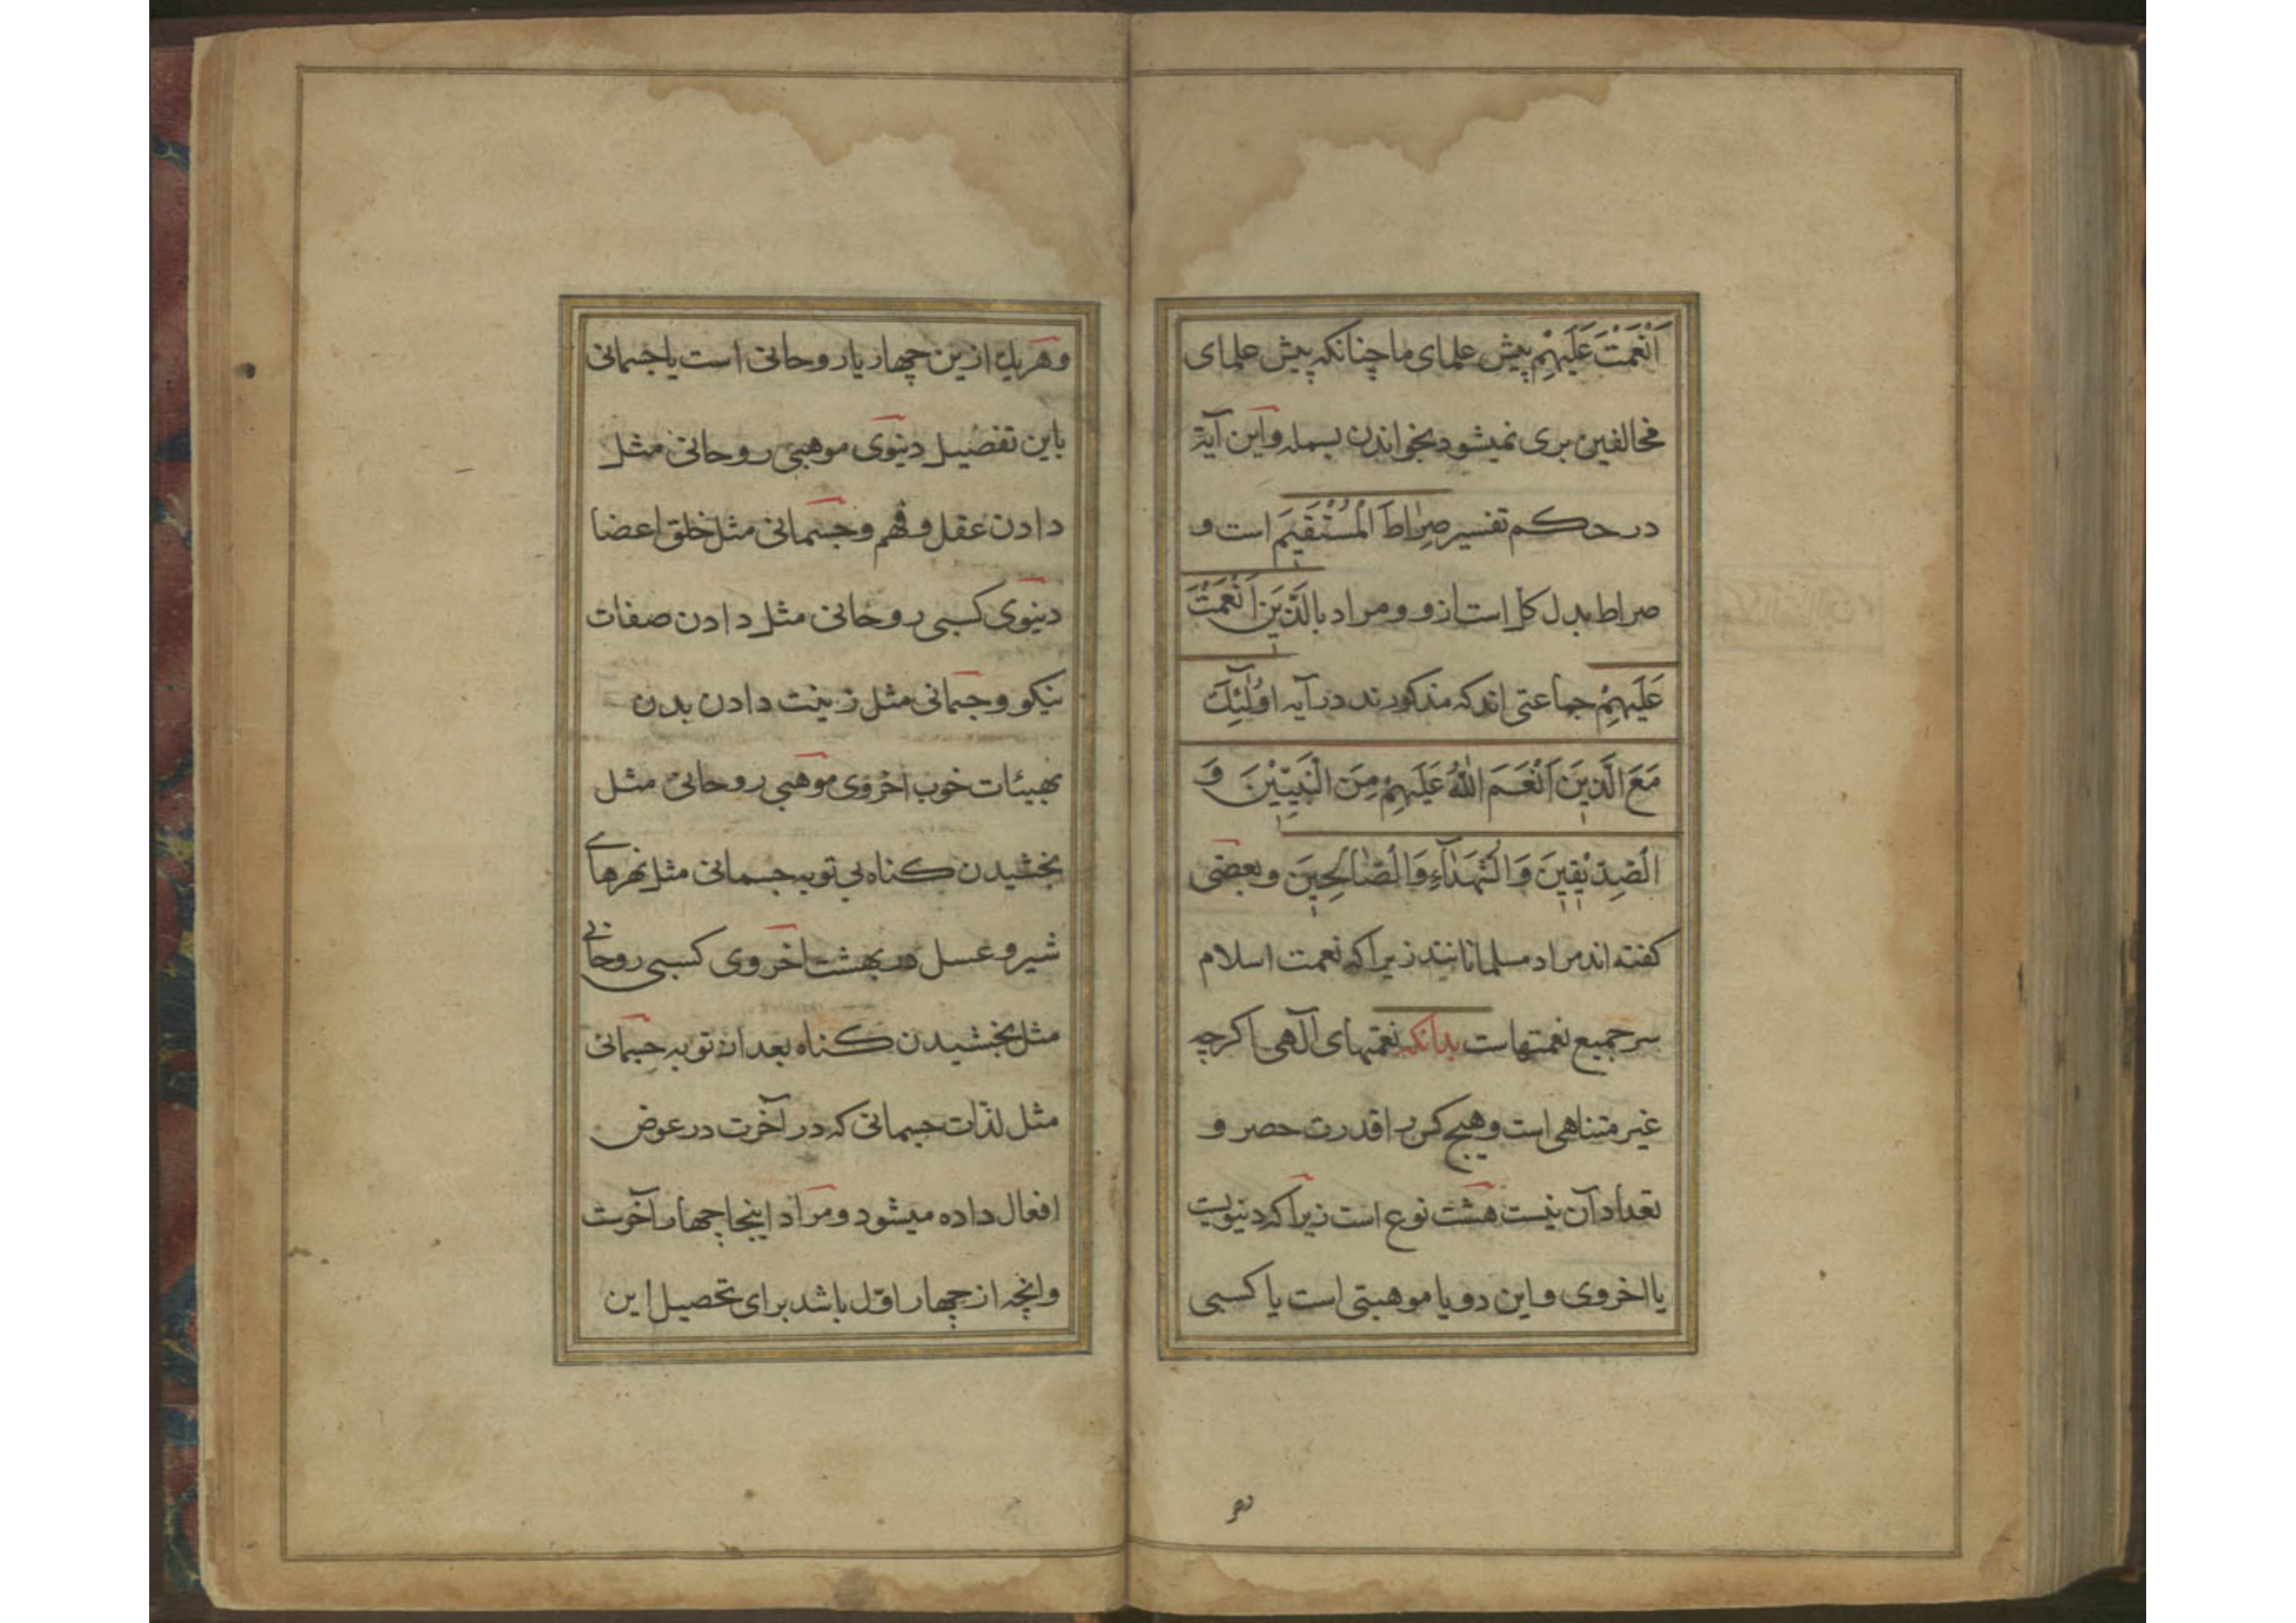 اَنْعَمْتَ عَلَیْهِمْ پیش علمای ما چنانکه پیش علمای
مخالفین بری نمیشود بخواندن بسمله و این آیة
در حکم تفسیر صِرٰاطَ الْمُسْتَقیٖمَ است و
صراط بدل کل است ازو و مراد بالَّذیٖنَ اَنْعَمْتَ
عَلَیْهِمْ جماعتی اند که مذکورند در آیه اوُلٰٓئِكَ
مَعَ الَّذیٖنَ اَنْعَمَ اللّٰهُ عَلَیْهِمْ مِنَ الْنَبِیّیٖنَ وَ
الْصِدّیٖقیٖنَ وَ الْشُهَدٰآءِ وَ الْصٰالِحیٖنَ و بعضی
کفته اند مراد مسلمانانند زیرا که نعمت اسلام
سر جمیع نعمتهاست بدانکه نعمتهای آلهی اکرچه
غیر متناهی است و هیچ کس را قدرت حصر و
تعداد آن نیست هشت نوع است زیرا که دنیویست
یا اخروی و این دو یا موهبتی است یا کسبی
و هر یك ازین چهار یا روحانی است یا جسمانی
باین تفصیل دنیوی موهبی روحانی مثل
دادن عقل و فهم و جسمانی مثل خلق اعضا
دنیوی کسبی روحانی مثل دادن صفات
نیکو و جسمانی مثل زینت دادن بدن
بهیئات خوب اخروی موهبی روحانی مثل
بخشیدن کناه بی توبه جسمانی مثل نهرهای
شیر و عسل در بهشت اخروی کسبی روحانی
مثل بخشیدن کناه بعد از توبه جسمانی
مثل لذّات جسمانی که در آخرت در عوض
افعال داده میشود و مراد اینجا چهار آخرست
و انچه از چهار اوّل باشد برای تحصیل این